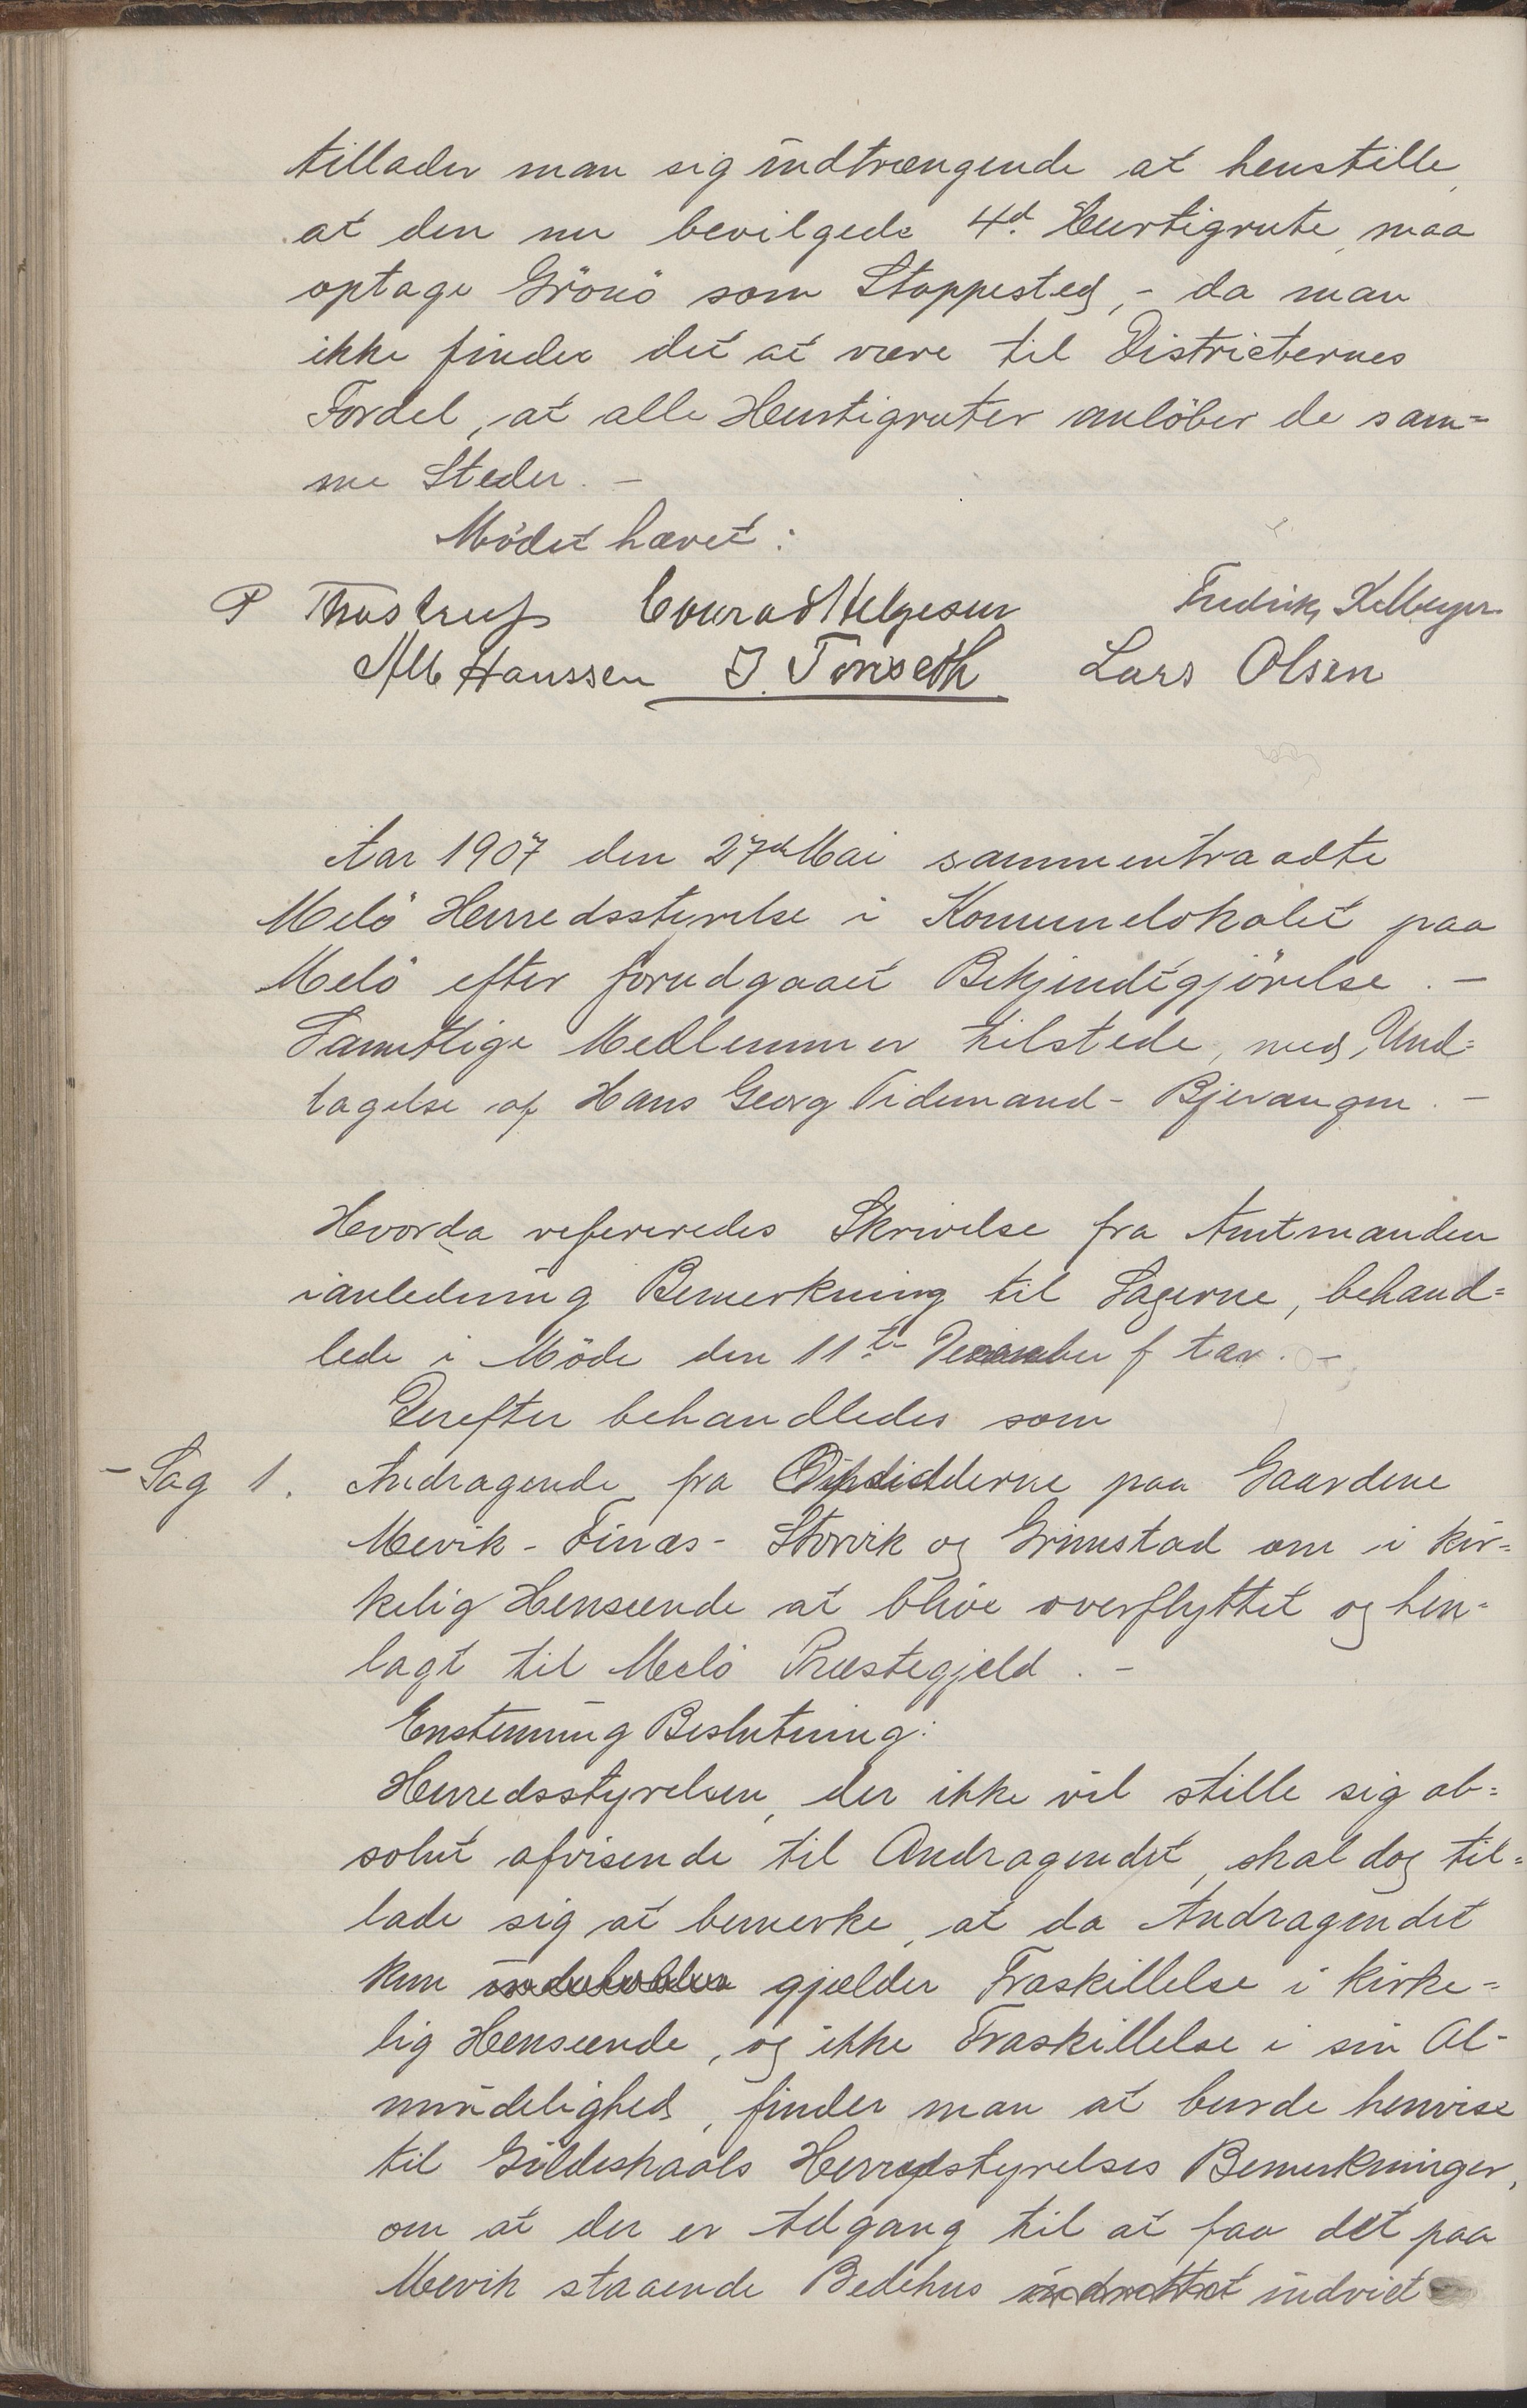 tillader man sig indtrængende at henstille,
at den nu bevilgede 4d. Hurtigrute, maa
optage Grönö som Stoppested, - da man
ikke finder det at være til Districternes
Fordel, at alle Hurtigruter anlöber de sam=
me Steder. -
Mödet hævet:
P Thostrup Conrad Helgesen Fredrik Kelbeyer
Alb Hanssen J. Tonseth Lars Olsen
Aar 1907 den 27de Mai sammentraadte
Melö Herredsstyrelse i Komunelokalet paa
Melö efter forudgaaet Bekjendtgjörelse. -
Samtlige Medlemmer tilstede, med Und=
tagelse af Hans Georg Tidemand - Bjerangen. -
Hvorda refereredes Skrivelse fra Amtmanden
ianledning Bemerkning til Sagerne, behand=
lede i Möde den 11te December f Aar. -
Derefter behandledes som
- Sag 1. Andragende fra Opsidderne paa Gaardene
Mevik - Finæs - Storvik og Grimstad om i kir=
kelig Henseende at blive overflyttet og hen=
lagt til Melö Præstegjeld. -
Enstemmig Beslutning:
Herredsstyrelsen, der ikke vil stille sig ab=
solut afvisende til Andragendet, skal dog til=
lade sig at bemerke, at da Andragendet
kun indeholder gjælder Fraskillelse i kirke=
lig Henseende, og ikke Fraskillelse i sin Al=
mindelighed, finder man at burde henvise
til Gildeskaals Herredstyrelses Bemerkninger,
om at der er Adgang til at faa det paa
Mevik staaende Bedehus indrettet indviet